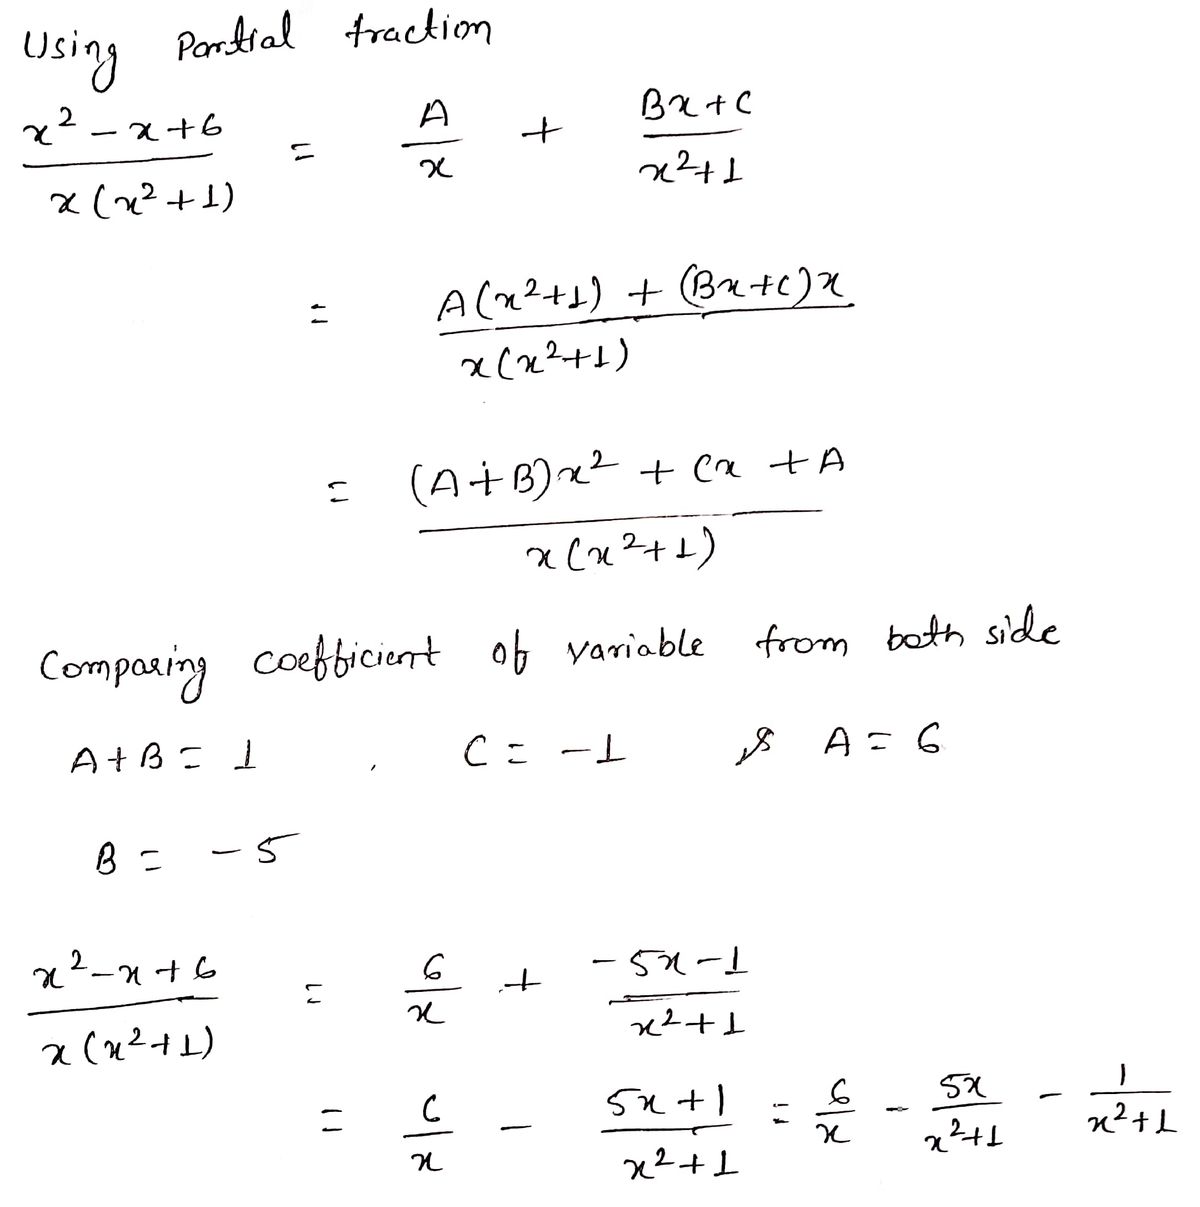 Using Partial fraction
x² - x + 6 / x(x² + 1) = A / x + Bx + C / x² + 1
= A(x² + 1) + (Bx + C)x / x(x² + 1)
= (A + B)x² + Cx + A / x(x² + 1)
Comparing coefficient of variable from both side
A + B = 1 , C = -1 & A = 6
B = -5
x² - x + 6 / x(x² + 1) = 6 / x + -5x - 1 / x² + 1
= 6 / x - 5x + 1 / x² + 1 = 6 / x - 5x / x² + 1 - 1 / x² + 1